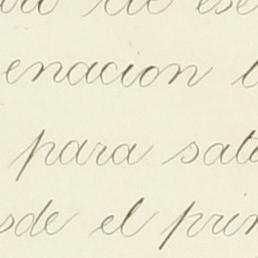 de ese
enacion
para sat
sde el prin